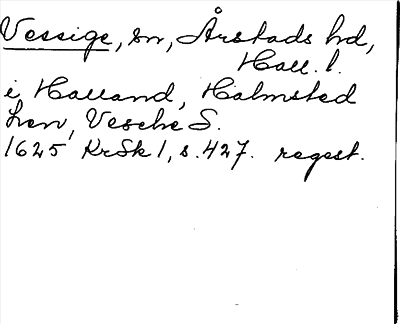 Vessige, sn, Årstads hd,
Hall. l.
i Halland, Halmsted
len, Vesche S.
1625 KrSk 1, s. 427. regest.